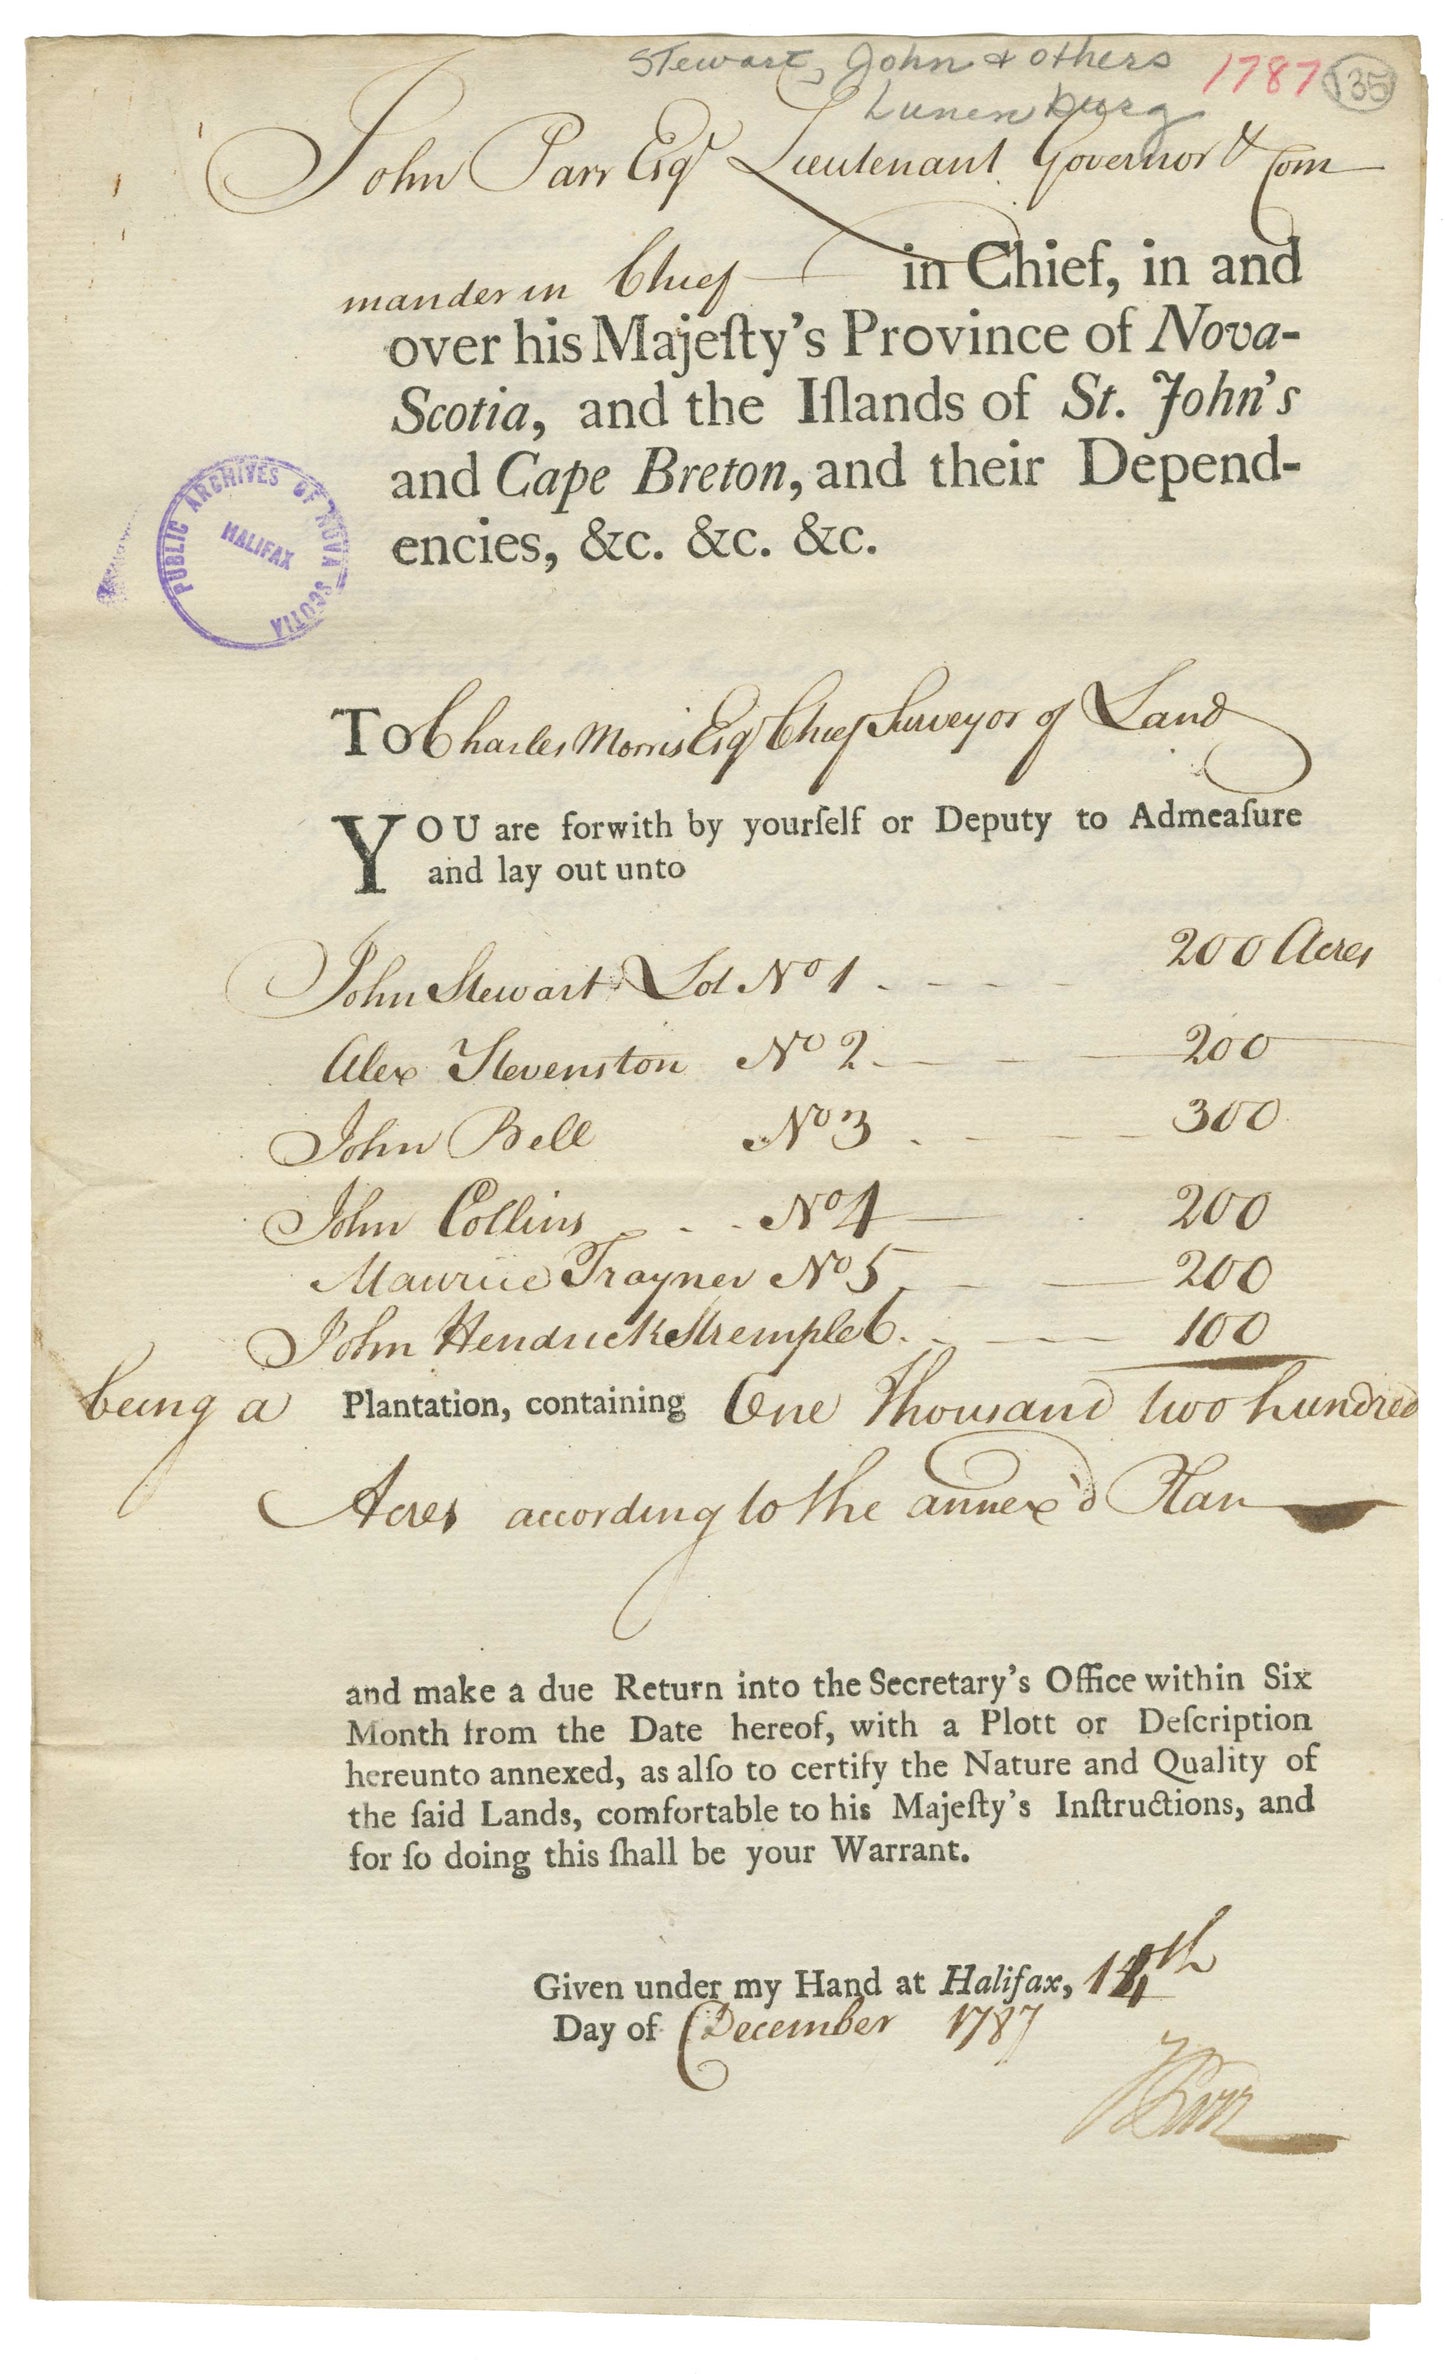 Stewart, John & others 1787 135
Lunenburg
John Parr Esqr Lieutenant Governor & Com
mander in Chief in Chief, in and
over his Majeſty's Province of Nova-
Scotia, and the Iſlands of St. John's
and Cape Breton, and their Depend-
encies, &c. &c. &c.
PUBLIC ARCHIVES OF NOVA SCOTIA
HALIFAX
To Charles Morris Esqr Chief Surveyor of Land
YOU are forwith by yourſelf or Deputy to Admeaſure
and lay out unto
John Stewart Lot No 1 - - - - 200 Acres
Alex Stevenston No 2 - - - 200
John Bell No 3 - - - - 300
John Collins - - - No 4 - - 200
Maurice Trayner No 5 - - - 200
John Hendrick Stremple 6. - - - 100
being a Plantation, containing One Thousand two hundred
Acres according to the annex'd Plan
and make a due Return into the Secretary's Office within Six
Month from the Date hereof, with a Plott or Deſcription
hereunto annexed, as alſo to certify the Nature and Quality of
the ſaid Lands, comfortable to his Majeſty's Inſtructions, and
for ſo doing this ſhall be your Warrant.
Given under my Hand at Halifax, 14th
Day of December 1787
J Parr